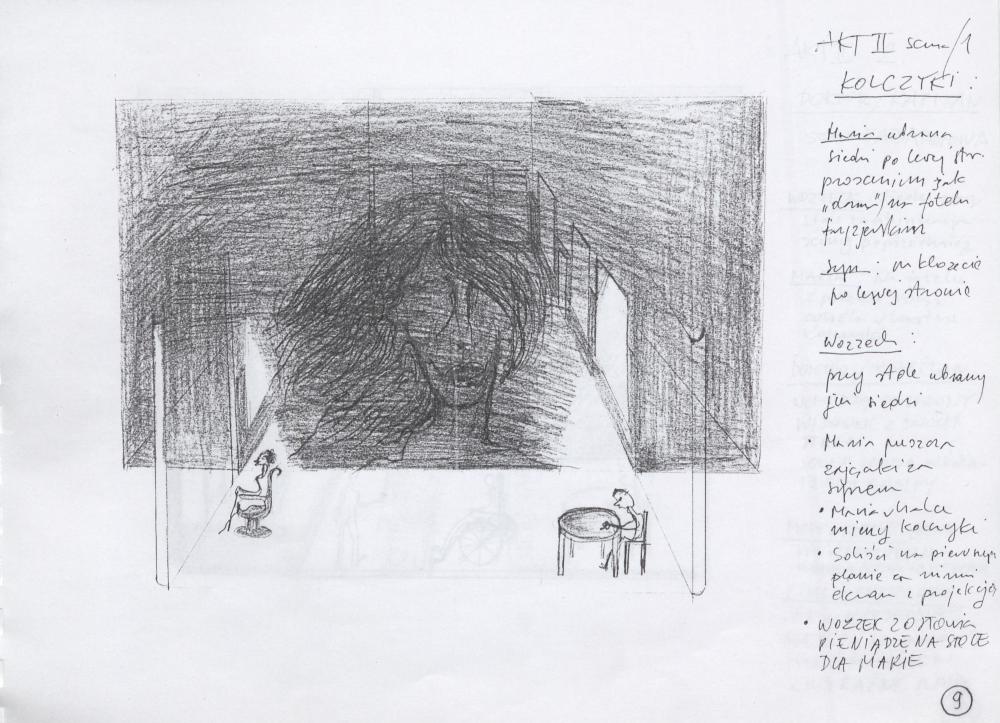 AKT II scena/1
KOLCZYKI:
Maria ubrana
siedzi po lewej str.
proscenium jak
"dama"/na fotelu
fryzjerskim
Syn: w klozecie
po lewej stronie
Wozzeck:
przy stole ubrany
już siedzi
• Maria puszcza
zajączki za
synem
• Maria
mierzy kolczyki
• Soliści na pierwszym
planie za nimi
ekran z projekcją
• WOZZEK ZOSTAWIA
PIENIĄDZE NA STOLE
DLA MARIE
9